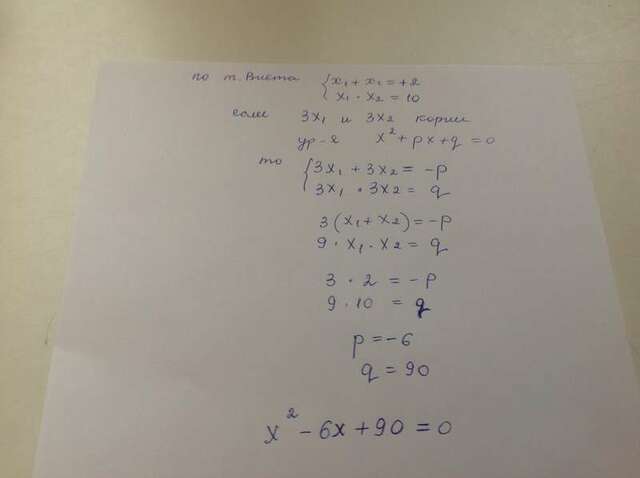 по т. Виета { x₁ + x₁ = +2
x₁ · x₂ = 10
если 3x₁ и 3x₂ корни
ур-я x² + px + q = 0
то { 3x₁ + 3x₂ = -p
3x₁ · 3x₂ = q
3(x₁ + x₂) = -p
9 · x₁ · x₂ = q
3 · 2 = -p
9 · 10 = q
p = -6
q = 90
x² - 6x + 90 = 0